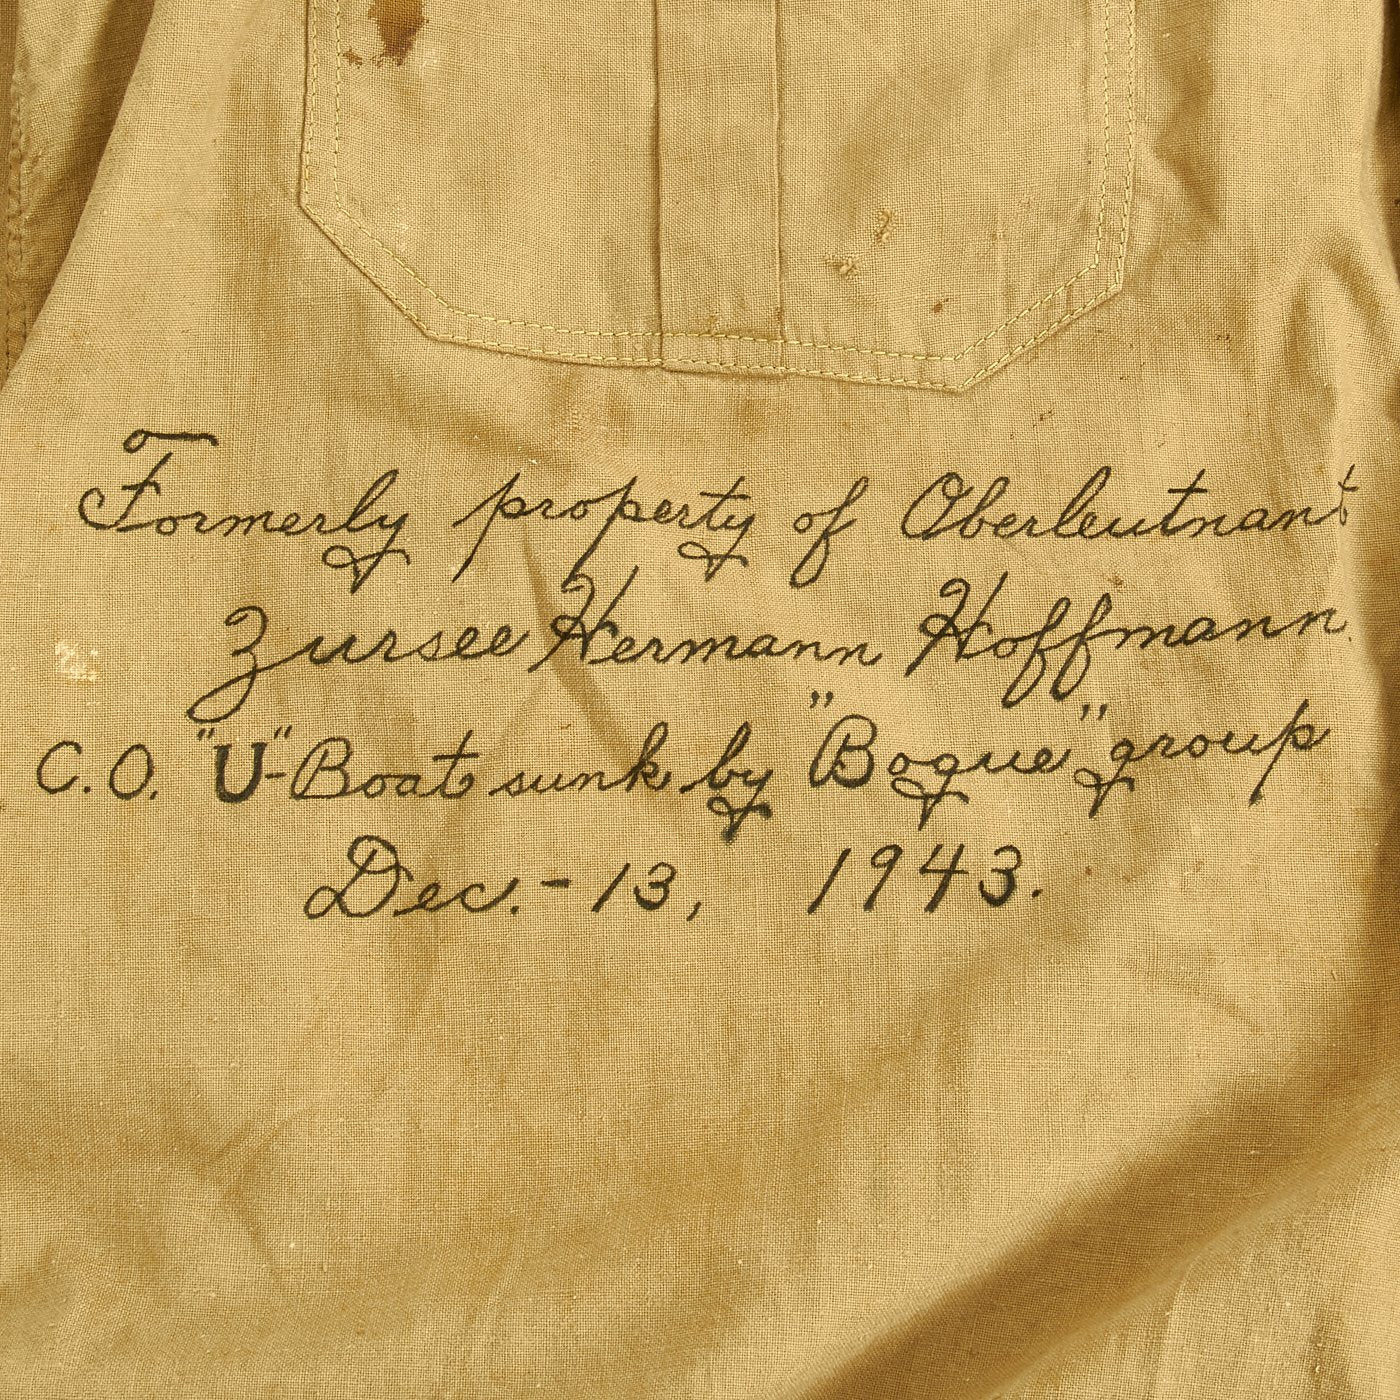 Formerly property of Oberleutnant
Zursee Hermann Hoffmann
C.O. "U"-Boat sunk by "Bogue" group
Dec.-13, 1943.